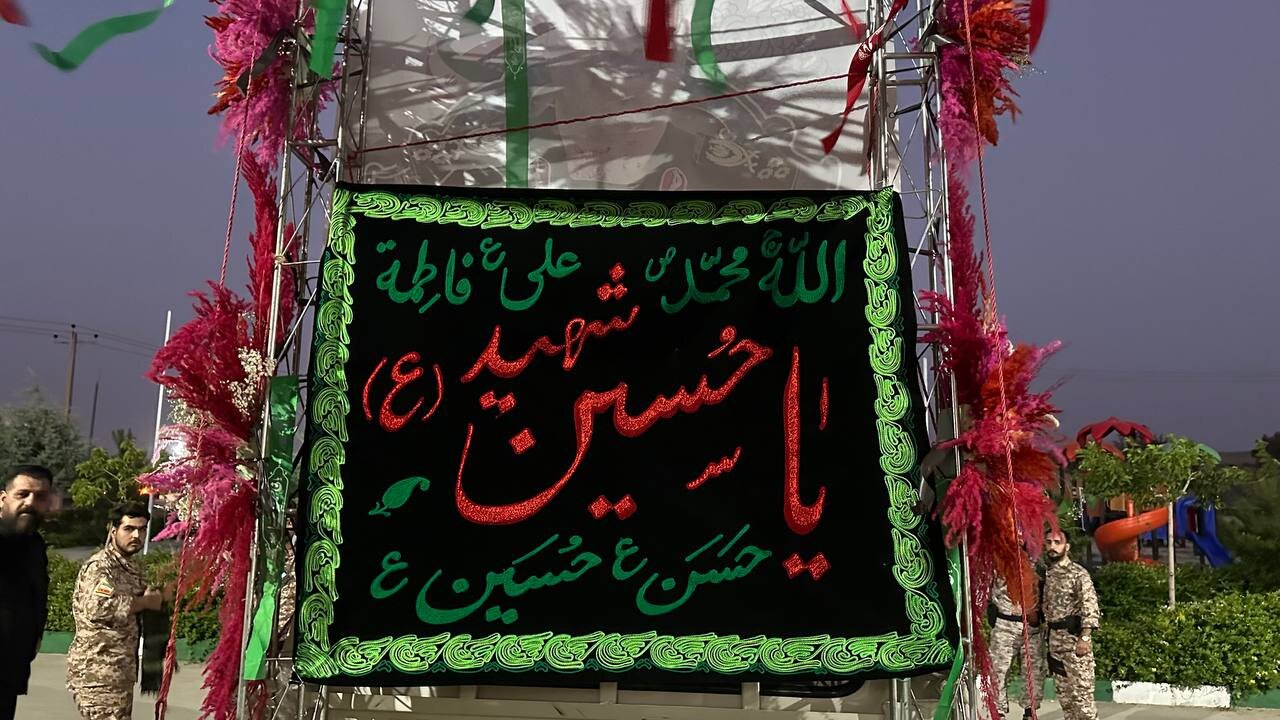 اللّٰه محمّد ص علی ع فاطِمة
یا حُسین شهید (ع)
حَسَن ع حُسَین ع